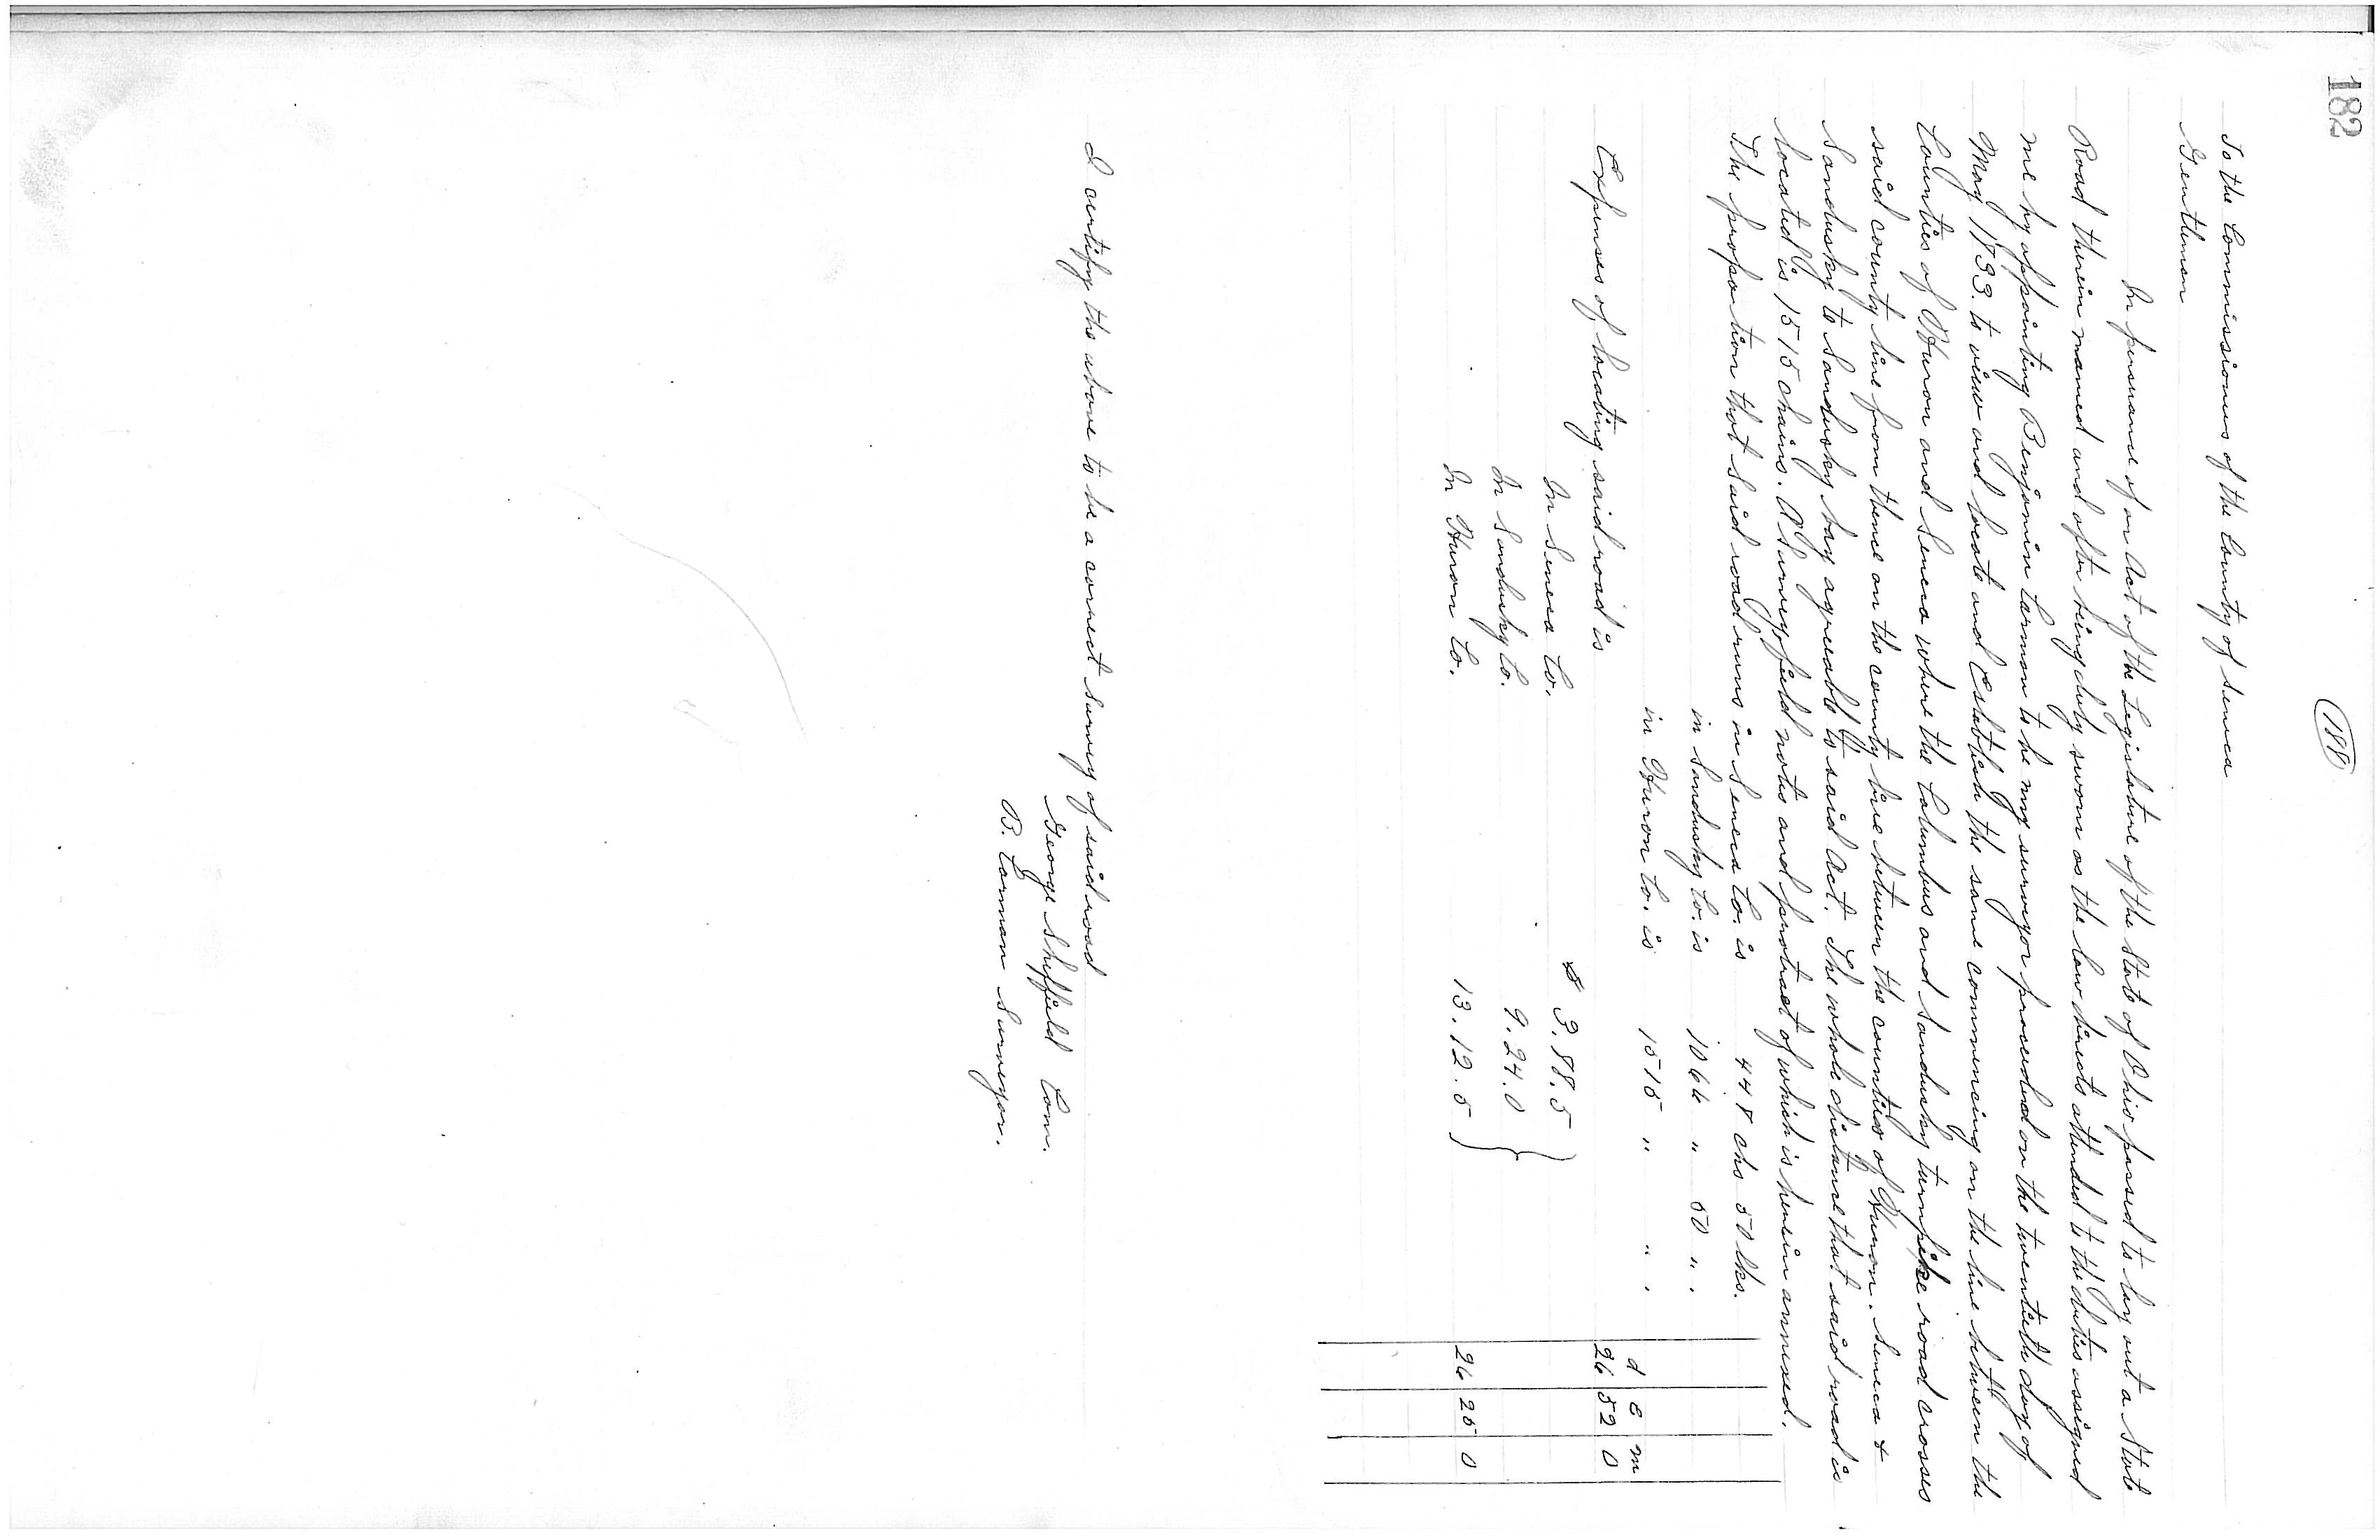 182
188
To the Commissioners of the County of Seneca
Gentlemen
In pursuance of an Act of the Legislature of the State of Ohio passed to lay out a State
Road therein named and after being duly sworn as the law directs attended to the duties assigned
me by appointing Benjamin Carman to be my surveyor proceeded on the twentieth day of
May 1833. to view and locate and establish the same commencing on the line between the
Counties of Huron and Seneca where the Columbus and Sandusky turnpike road crosses
said county line from thence on the county line between the counties of Huron. Seneca &
Sandusky to Sandusky bay agreeable to said Act. The whole distance that said road is
located is 1515 chains. A Survey, field notes and protract of which is herein annexed.
The proportion that said road runs in Seneca Co. is 448 chs 50 lks.
in Sandusky Co. is 1066 " 50 ".
in Huron Co. is 1515 " " .
d c m
Expenses of locating said road is 26 52 0
In Seneca Co. $ 3.88.5
In Sandusky Co. 9.24.0
In Huron Co. 13.12.5 } 26 25 0
I certify the above to be a correct survey of said road
George Sheffield Com.
B. Carman Surveyor.